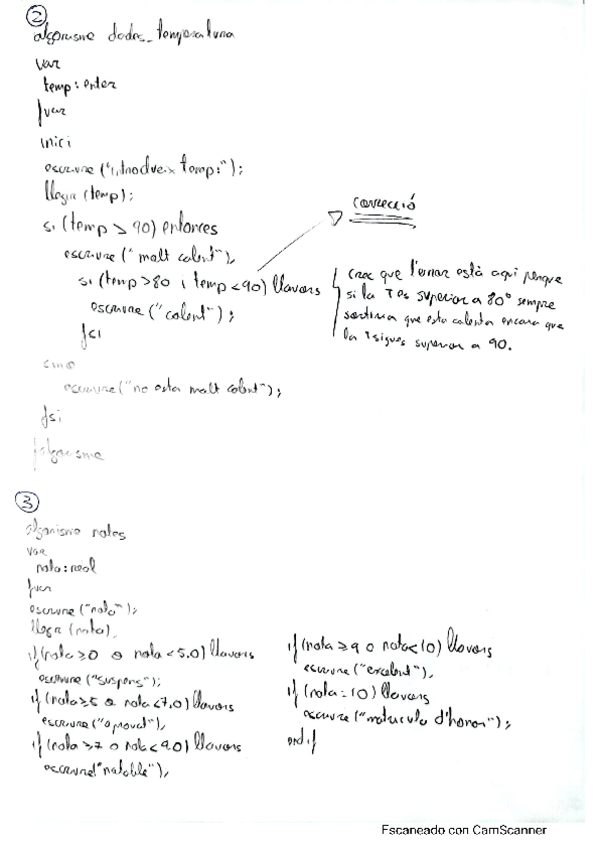 2
algorisme dades_temperatura
var
temp: enter
fvar
inici
escriure ("introdueix temp:");
llegir (temp);
si (temp > 90) entonces
escriure (" molt calent");
si (temp >80 i temp <90) llavors
escriure ("calent");
fsi
sino
escriure ("no esta molt calent");
fsi
falgorisme
correcció
crec que l'error està aqui perque
si la T es superior a 80° sempre
sortiria que esta calenta encara que
la T sigues superior a 90.
3
algorisme notes
var
nota: real
fvar
escriure ("nota");
llegir (nota)
if (nota ≥0 o nota <5.0) llavors
escriure ("suspens");
if (nota ≥5 o nota <7.0) llavors
escriure ("aprovat");
if (nota ≥7 o nota <9.0) llavors
escriure ("notable");
if (nota ≥9 o nota <10) llavors
escriure ("excelent");
if (nota = 10) llavors
escriure ("matricula d'honor");
end if
Escaneado con CamScanner